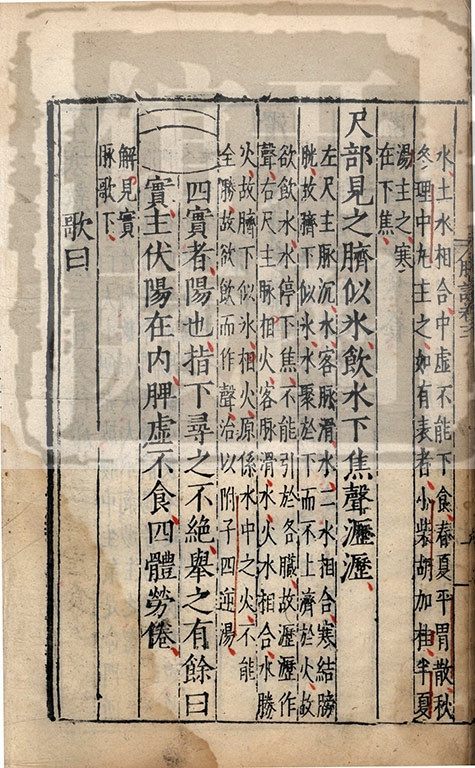 水土水相合中虛不能下食春夏平胃散秋
冬理中丸主之如有表者小柴胡加桂半夏
湯主之寒
在下焦
尺部見之臍似氷飲水下焦聲瀝瀝
左尺主脉沉水客脉滑水二水相合寒結膀
胱故臍下似氷水聚於下而不上濟於火故
欲飲水水停下焦不能引於各臓故瀝瀝作
聲右尺主脉相火客脉滑水火水相合水勝
火故臍下似氷相火原係水中之火不能
全勝故欲飲而作聲治以附子四逆湯
四實者陽也指下尋之不絶舉之有餘曰
實主伏陽在内脾虛不食四體勞倦
解見實
脉歌下
歌曰